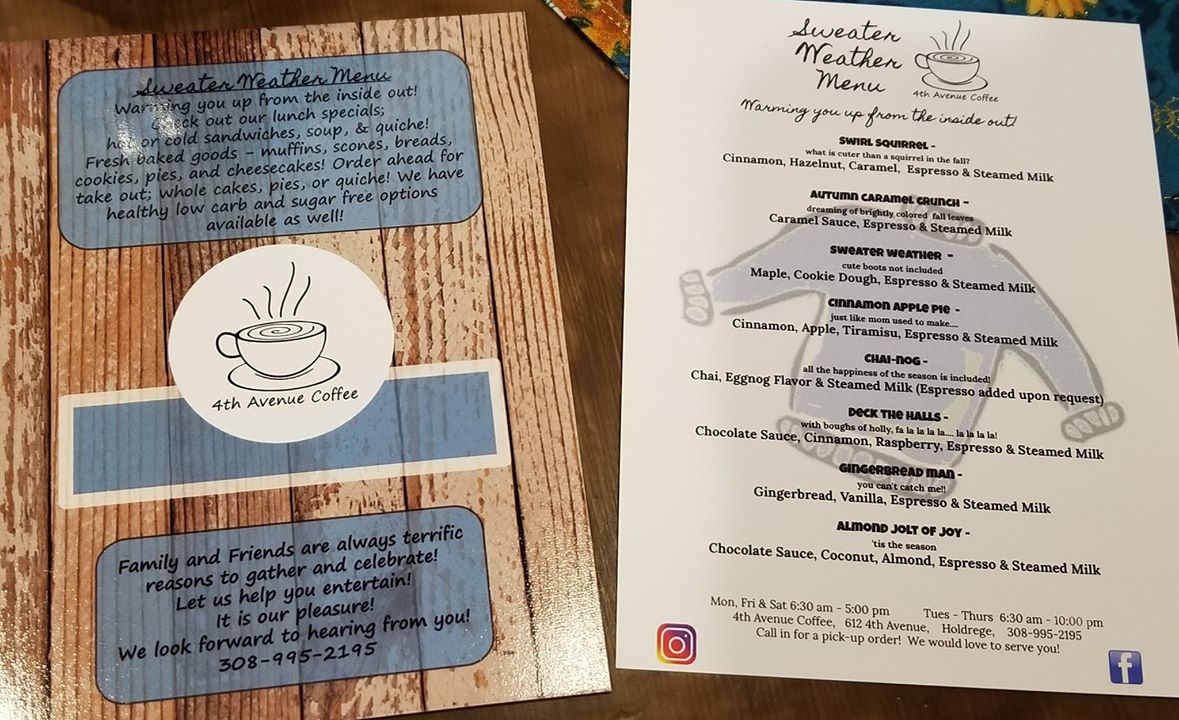 Sweater Weather Menu
Warming you up from the inside out!
Check out our lunch specials;
hot or cold sandwiches, soup, & quiche!
Fresh baked goods - muffins, scones, breads,
cookies, pies, and cheesecakes! Order ahead for
take out; whole cakes, pies, or quiche! We have
healthy low carb and sugar free options
available as well!
4th Avenue Coffee
Family and Friends are always terrific
reasons to gather and celebrate!
Let us help you entertain!
It is our pleasure!
We look forward to hearing from you!
308-995-2195
Sweater
Weather
Menu
4th Avenue Coffee
Warming you up from the inside out!
Swirl Squirrel -
what is cuter than a squirrel in the fall?
Cinnamon, Hazelnut, Caramel, Espresso & Steamed Milk
Autumn Caramel Crunch -
dreaming of brightly colored fall leaves
Caramel Sauce, Espresso & Steamed Milk
Sweater Weather -
cute boots not included
Maple, Cookie Dough, Espresso & Steamed Milk
Cinnamon Apple Pie -
just like mom used to make....
Cinnamon, Apple, Tiramisu, Espresso & Steamed Milk
Chai-Nog -
all the happiness of the season is included!
Chai, Eggnog Flavor & Steamed Milk (Espresso added upon request)
Deck The Halls -
with boughs of holly, fa la la la la.... la la la la!
Chocolate Sauce, Cinnamon, Raspberry, Espresso & Steamed Milk
Gingerbread Man -
you can't catch me!!
Gingerbread, Vanilla, Espresso & Steamed Milk
Almond Jolt of Joy -
'tis the season
Chocolate Sauce, Coconut, Almond, Espresso & Steamed Milk
Mon, Fri & Sat 6:30 am - 5:00 pm Tues - Thurs 6:30 am - 10:00 pm
4th Avenue Coffee, 612 4th Avenue, Holdrege, 308-995-2195
Call in for a pick-up order! We would love to serve you!